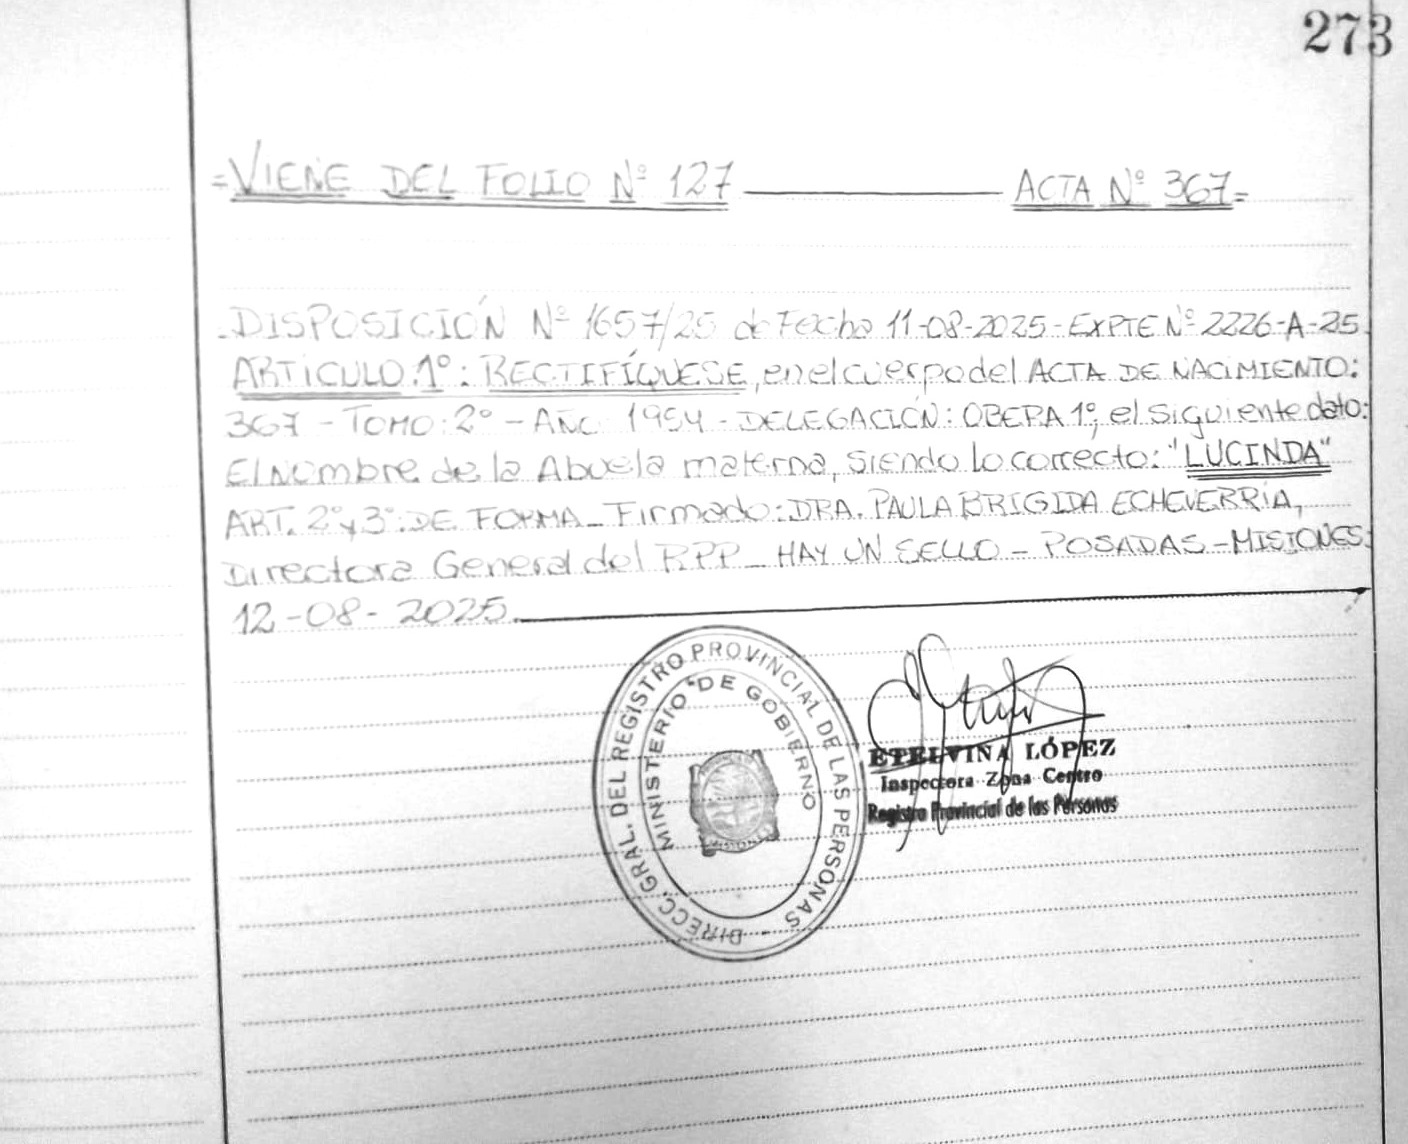 273
=VIENE DEL FOLIO Nº 127 ACTA Nº 367=
-DISPOSICIÓN Nº 1657/25 de Fecha 11-08-2025-EXPTE Nº 2226-A-25.
ARTICULO 1º: RECTIFÍQUESE, en el cuerpo del ACTA DE NACIMIENTO:
367 - TOMO: 2º - AÑO 1954 - DELEGACIÓN: OBERA 1º, el siguiente dato:
El Nombre de la Abuela materna, siendo lo correcto: "LUCINDA"
ART. 2º y 3º: DE FORMA_ Firmado: DRA. PAULA BRIGIDA ECHEVERRÍA,
Directora General del RPP_ HAY UN SELLO - POSADAS - MISIONES:
12-08-2025.
DIRECC. GRAL. DEL REGISTRO PROVINCIAL DE LAS PERSONAS -
MINISTERIO DE GOBIERNO
MISIONES
ETELVINA LÓPEZ
Inspectora Zona Centro
Registro Provincial de las Personas